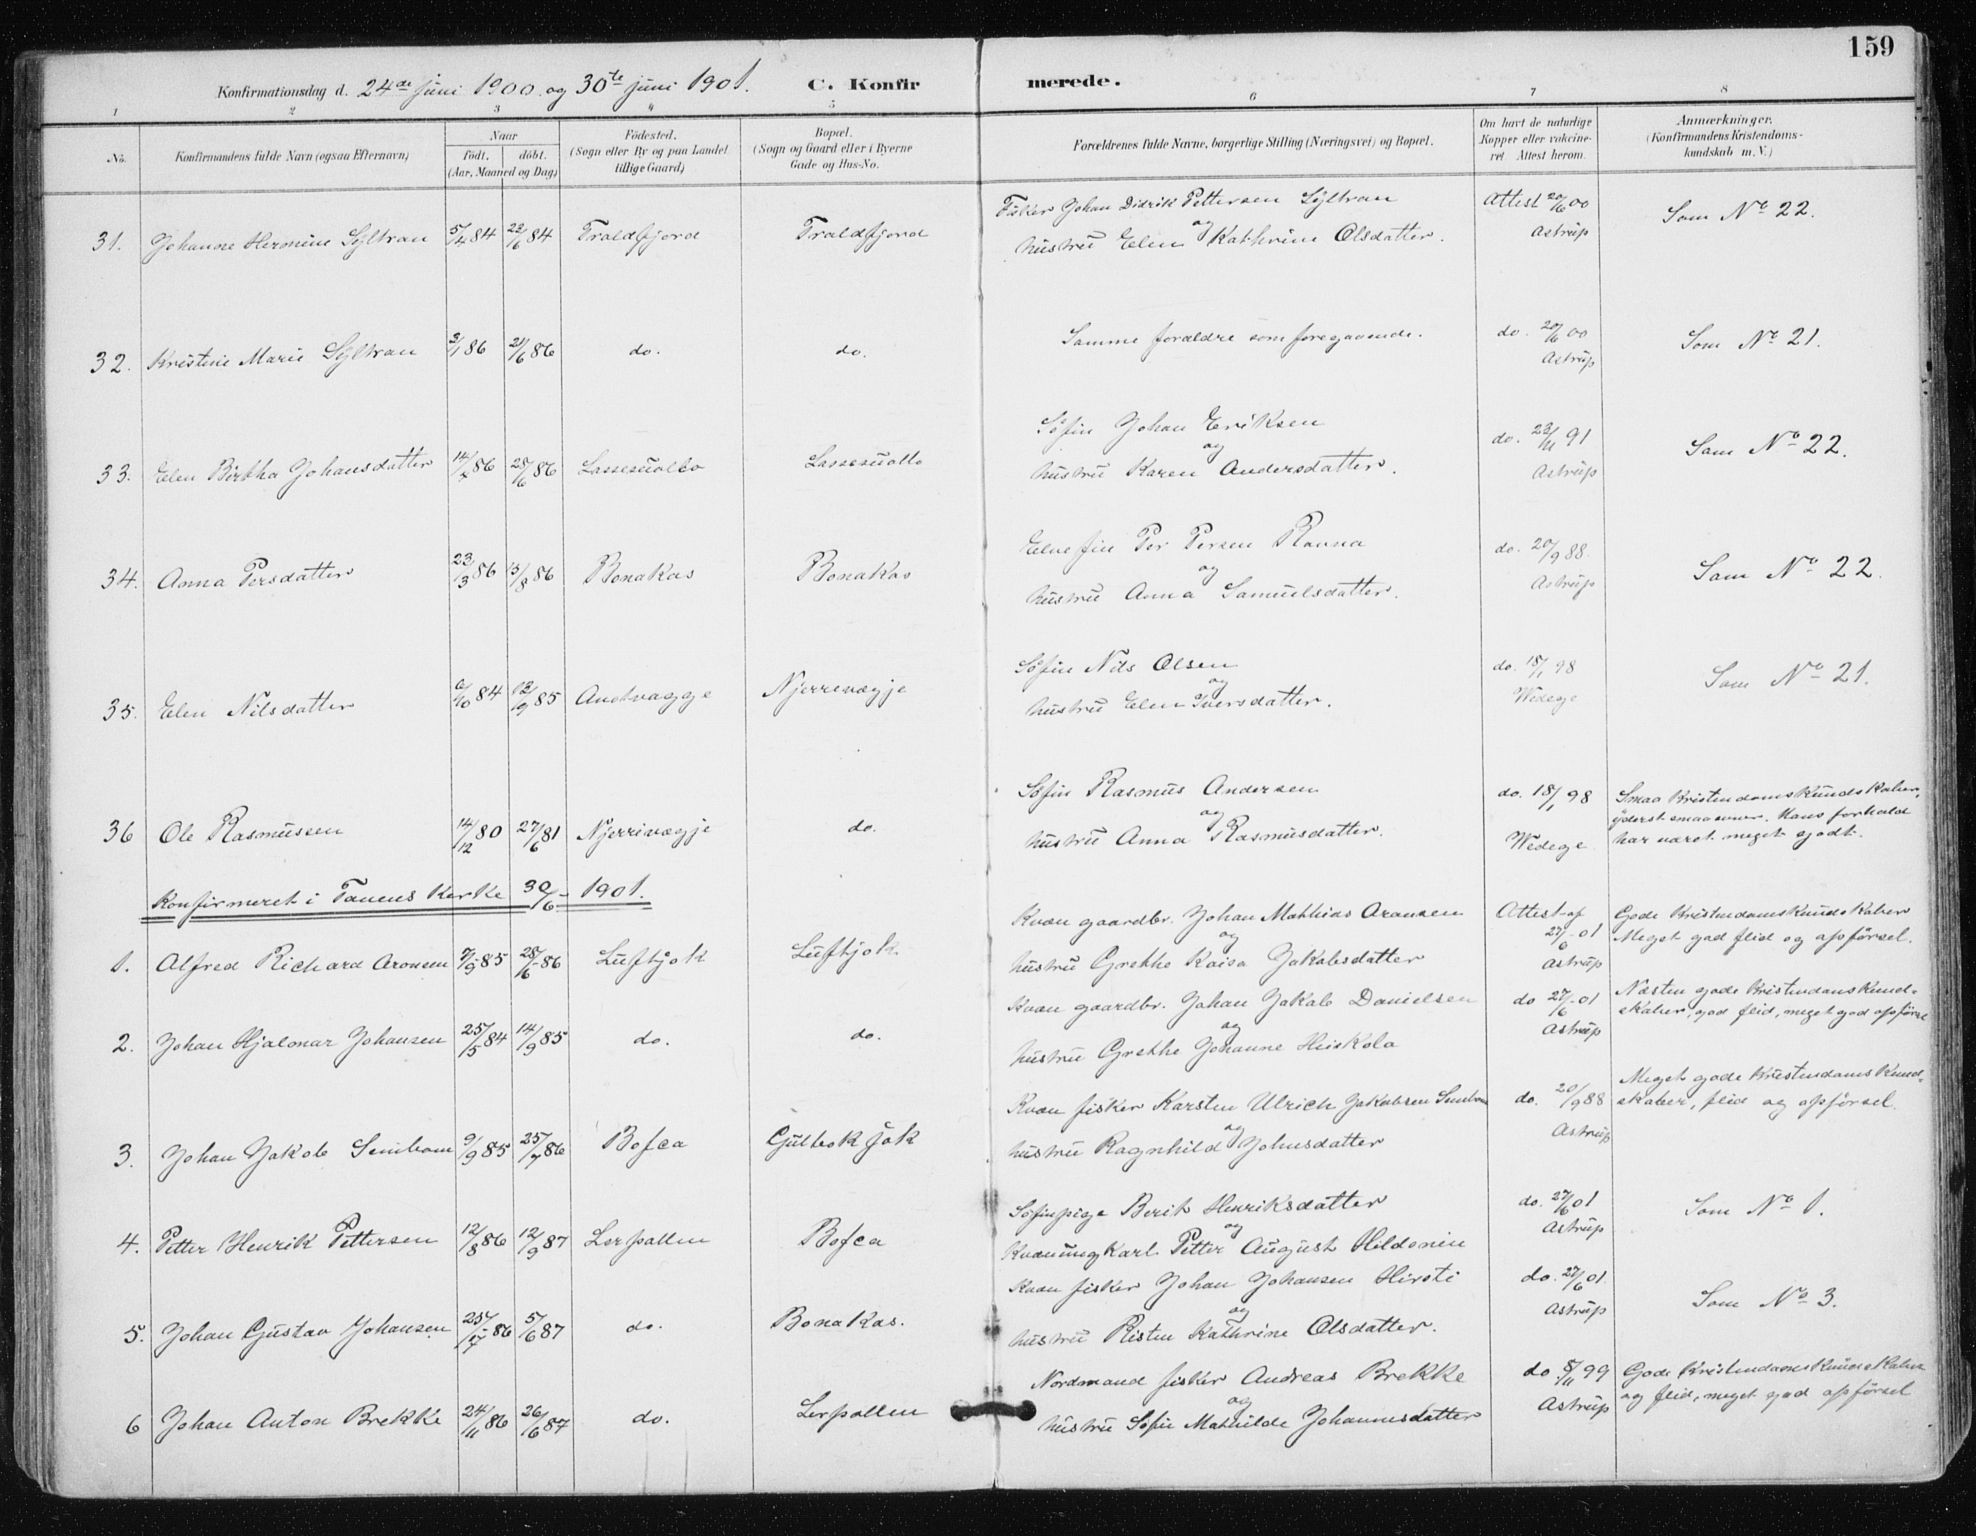 159
Konfirmationsdag d. 24de juni 1900 og 30te juni 1901. C. Konfirmerede.
1 2 3 4 5 6 7 8
No.
Konfirmandens fulde Navn (ogsaa Efternavn)
Naar
født. døbt.
(Aar, Maaned og Dag)
Fødested.
(Sogn eller By og paa Landet
tillige Gaard)
Bopæl.
(Sogn og Gaard eller i Byerne
Gade og Hus-No.
Forældrenes fulde Navne, borgerlige Stilling (Næringsvei) og Bopæl.
Om havt de naturlige
Kopper eller vakcine-
ret. Attest herom.
Anmærkninger.
(Konfirmandens Kristendoms-
kundskab m. V.)
Fisker Johan Didrik Pettersen Syltran Attest 20/6 00 Som No 22.
31. Johanne Heronine Syltran 5/4 84 22/6 84 Traldfjord Traldfjord
og
hustru Elen Kathrine Olsdatter. Astrup
32. Kristine Marie Syltran 3/1 86 21/6 86 do. do. Samme forældre som foregaaende. do. 20/6 00 Som No 21.
Astrup
Søfin Johan Eriksen do. 23/11 91 Som No 22.
33. Elen Birtha Johansdatter 86 25/6 86 Lassesuolbo Lassesuolbo
og
hustru Karen Andersdatter. Astrup
Elvefin Per Persen Ravna do. 20/9 88.
34. Anna Persdatter 23/3 86 15/8 86 Bonakas Bonakas Som No 22.
og
hustru Anna Samuelsdatter. Astrup
Søfin Nils Olsen do. 18/1 98 Som No 21.
35. Elen Nilsdatter 84 13/9 85 Austvagge Njerrevægje
og
hustru Elen Iversdatter. Wedege
Søfin Rasmus Andersen do. 18/1 98 Smaa Kristendomskundskaber,
yderst smaa evner. Hans forhold
har været meget godt.
36 Ole Rasmussen 14/12 80 27/6 81 Njerrivægje do.
og
hustru Anna Rasmusdatter. Wedege
Konfirmeret i Tanens Kerke 30/6 - 1901.
Kvæn gaardbr. Johan Mathias Aronsen Attest af 27/6 - 01 Gode Kristendomskundskaber
Meget god flid og opførsel.
1. Alfred Richard Aronsen 7/9 85 28/6 86 Luftjok Luftjok
og
hustru Grethe Kaisa Jakobsdatter Astrup
Kvæn gaardbr. Johan Jakob Danielsen do 27/6 - 01 Næsten gode Kristendomskund-
skaber, god flid, meget god opførsel
2. Johan Hjalmar Johansen 25/5 84 14/9 85 do. do.
og
hustru Grethe Johanne Heiskola Astrup
Kvæn fisker Karsten Ulrich Jakobsen do. 20/9 88 Meget gode Kristendomskund-
skaber, flid og opførsel.
3. Johan Jakob 9/9 85 25/7 86 Bofca Gulbokjok
og
hustru Ragnhild Johnsdatter Astrup
Søfinpige Berit Henriksdatter do. 27/6 01 Som No 1.
4. Petter Henrik Pettersen 12/8 86 12/9 87 Lerpollen Bofca
og
Kvænungkarl Petter August Hildonen Astrup
Kvæn fisker Johan Johansen Hirsti do. 27/6 01 Som No 3.
5. Johan Gustav Johansen 25/7 86 5/6 87 do. Bonakas.
og
hustru Risten Kathrine Olsdatter. Astrup
Nordmand fisker Andreas Brekke do 8/11 99 Gode Kristendomskundskaber
og flid, meget god opførsel
6 Johan Anton Brekke 24/11 86 26/6 87 do. Lerpollen
og
hustru Sofie Mathilde Johannesdatter Astrup